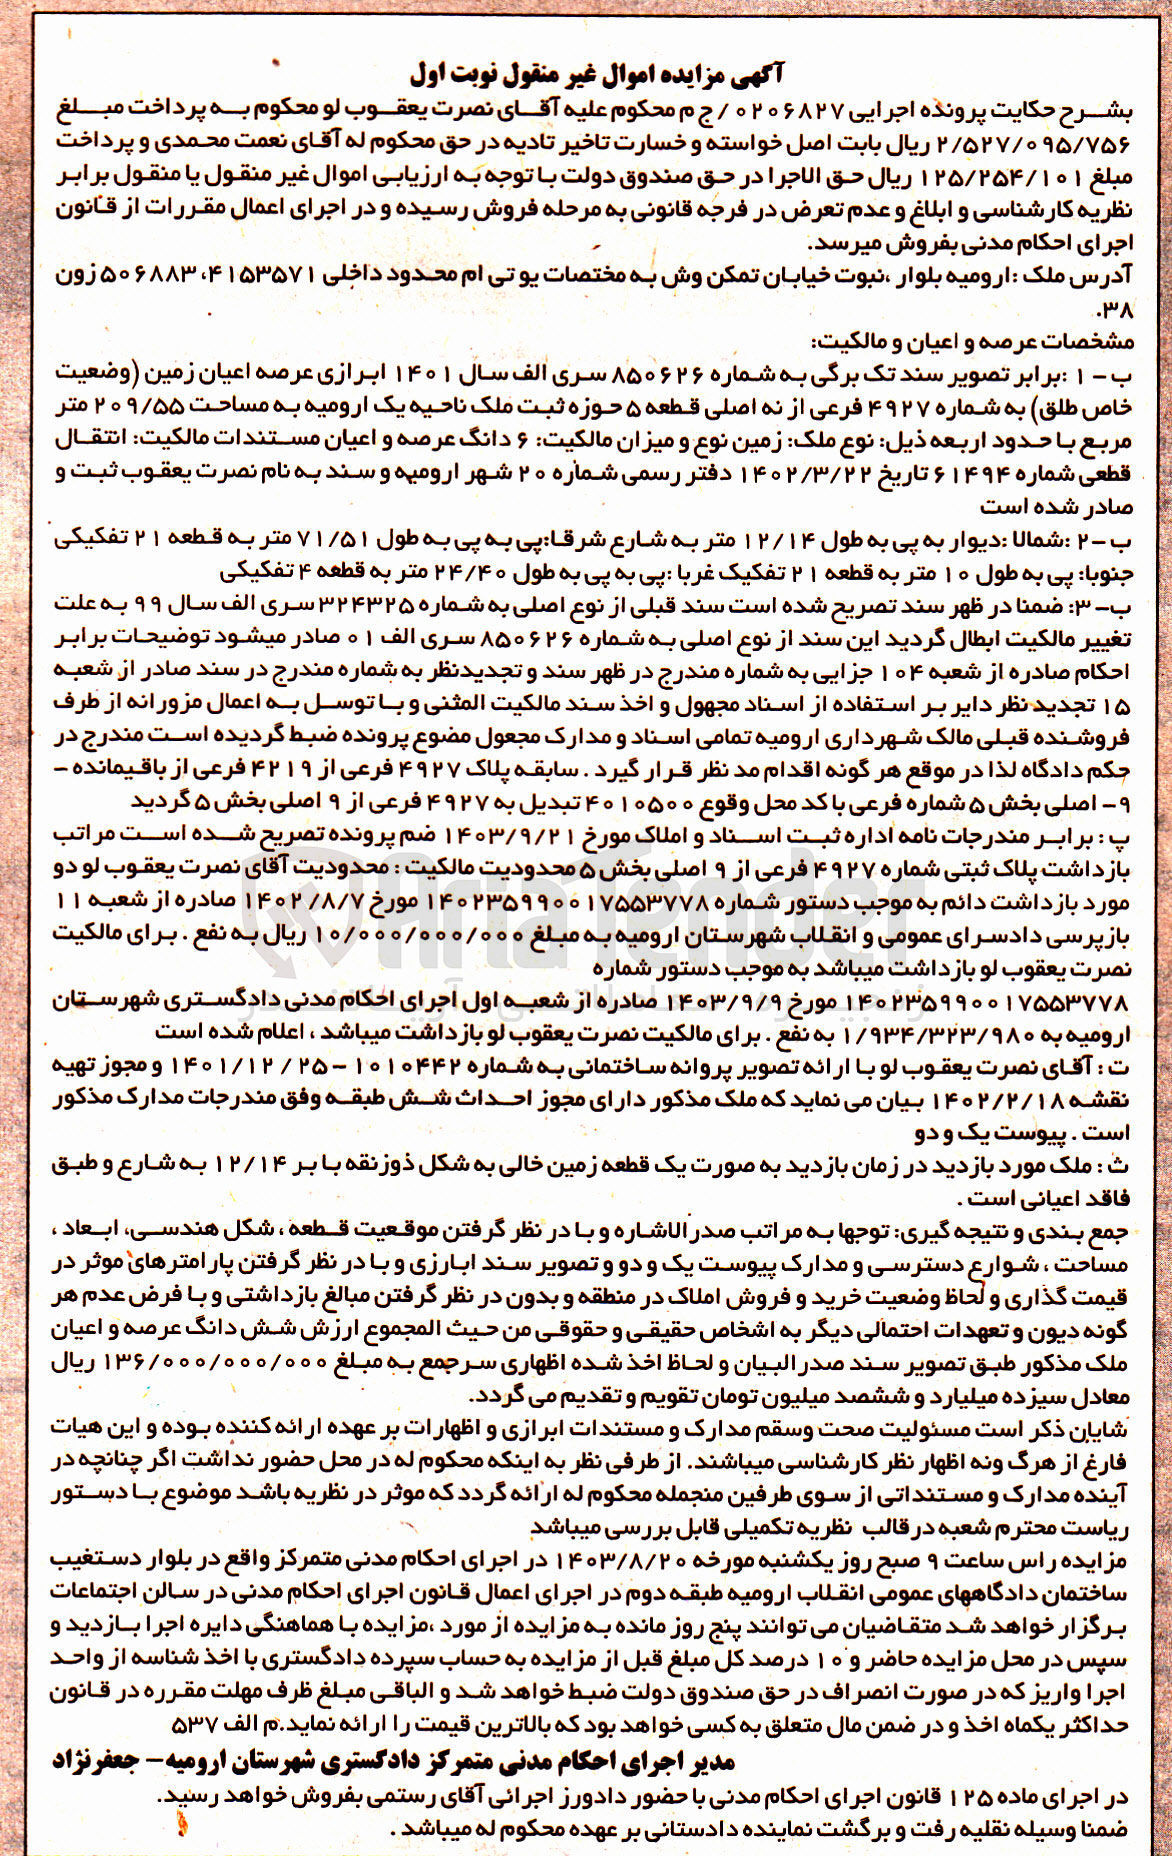 آگهی مزایده اموال غیر منقول نوبت اول
بشرح حکایت پرونده اجرایی ۰۲۰۶۸۲۷ / ج م محکوم علیه آقای نصرت یعقوب لو محکوم به پرداخت مبلغ
۲/۵۲۷/۰۹۵/۷۵۶ ریال بابت اصل خواسته و خسارت تاخیر تادیه در حق محکوم له آقای نعمت محمدی و پرداخت
مبلغ ۱۲۵/۲۵۴/۱۰۱ ریال حق الاجرا در حق صندوق دولت با توجه به ارزیابی اموال غیر منقول یا منقول برابر
نظریه کارشناسی و ابلاغ و عدم تعرض در فرجه قانونی به مرحله فروش رسیده و در اجرای اعمال مقررات از قانون
اجرای احکام مدنی بفروش میرسد.
آدرس ملک :ارومیه بلوار ،نبوت خیابان تمکن وش به مختصات یو تی ام محدود داخلی ۴۱۵۳۵۷۱، ۵۰۶۸۸۳ زون
۳۸.
مشخصات عرصه و اعیان و مالکیت:
ب- ۱ :برابر تصویر سند تک برگی به شماره ۸۵۰۶۲۶ سری الف سال ۱۴۰۱ ابرازی عرصه اعیان زمین (وضعیت
خاص طلق) به شماره ۴۹۲۷ فرعی از نه اصلی قطعه ۵ حوزه ثبت ملک ناحیه یک ارومیه به مساحت ۲۰۹/۵۵ متر
مربع با حدود اربعه ذیل: نوع ملک: زمین نوع و میزان مالکیت: ۶ دانگ عرصه و اعیان مستندات مالکیت: انتقال
قطعی شماره ۶۱۴۹۴ تاریخ ۱۴۰۲/۳/۲۲ دفتر رسمی شماره ۲۰ شهر ارومیه و سند به نام نصرت یعقوب ثبت و
صادر شده است
ب-۲ :شمالا :دیوار به پی به طول ۱۲/۱۴ متر به شارع شرقا:پی به پی به طول ۷۱/۵۱ متر به قطعه ۲۱ تفکیکی
جنوبا: پی به طول ۱۰ متر به قطعه ۲۱ تفکیک غربا :پی به پی به طول ۲۴/۴۰ متر به قطعه ۴ تفکیکی
ب-۳: ضمنا در ظهر سند تصریح شده است سند قبلی از نوع اصلی به شماره ۳۲۴۳۲۵ سری الف سال ۹۹ به علت
تغییر مالکیت ابطال گردید این سند از نوع اصلی به شماره ۸۵۰۶۲۶ سری الف ۰۱ صادر میشود توضیحات برابر
احکام صادره از شعبه ۱۰۴ جزایی به شماره مندرج در ظهر سند و تجدیدنظر به شماره مندرج در سند صادر از شعبه
۱۵ تجدید نظر دایر بر استفاده از اسناد مجهول و اخذ سند مالکیت المثنی و با توسل به اعمال مزورانه از طرف
فروشنده قبلی مالک شهرداری ارومیه تمامی اسناد و مدارک مجعول مضوع پرونده ضبط گردیده است مندرج در
حکم دادگاه لذا در موقع هر گونه اقدام مد نظر قرار گیرد . سابقه پلاک ۴۹۲۷ فرعی از ۴۲۱۹ فرعی از باقیمانده -
۹- اصلی بخش ۵ شماره فرعی با کد محل وقوع ۴۰۱۰۵۰۰ تبدیل به ۴۹۲۷ فرعی از ۹ اصلی بخش ۵ گردید
پ : برابر مندرجات نامه اداره ثبت اسناد و املاک مورخ ۱۴۰۳/۹/۲۱ ضم پرونده تصریح شده است مراتب
بازداشت پلاک ثبتی شماره ۴۹۲۷ فرعی از ۹ اصلی بخش ۵ محدودیت مالکیت : محدودیت آقای نصرت یعقوب لو دو
مورد بازداشت دائم به موجب دستور شماره ۱۴۰۲۳۵۹۹۰۰۱۷۵۵۳۷۷۸ مورخ ۱۴۰۲/۸/۷ صادره از شعبه ۱۱
بازپرسی دادسرای عمومی و انقلاب شهرستان ارومیه به مبلغ ۱۰/۰۰۰/۰۰۰/۰۰۰ ریال به نفع . برای مالکیت
نصرت یعقوب لو بازداشت میباشد به موجب دستور شماره
۱۴۰۲۳۵۹۹۰۰۱۷۵۵۳۷۷۸ مورخ ۱۴۰۳/۹/۹ صادره از شعبه اول اجرای احکام مدنی دادگستری شهرستان
ارومیه به ۱/۹۳۴/۳۲۳/۹۸۰ به نفع . برای مالکیت نصرت یعقوب لو بازداشت میباشد ، اعلام شده است
ت : آقای نصرت یعقوب لو با ارائه تصویر پروانه ساختمانی به شماره ۱۰۱۰۴۴۲ -۲۵ / ۱۴۰۱/۱۲ و مجوز تهیه
نقشه ۱۴۰۲/۲/۱۸ بیان می نماید که ملک مذکور دارای مجوز احداث شش طبقه وفق مندرجات مدارک مذکور
است . پیوست یک و دو
ث : ملک مورد بازدید در زمان بازدید به صورت یک قطعه زمین خالی به شکل ذوزنقه با بر ۱۲/۱۴ به شارع و طبق
فاقد اعیانی است .
جمع بندی و نتیجه گیری: توجها به مراتب صدر الاشاره و با در نظر گرفتن موقعیت قطعه ، شکل هندسی، ابعاد ،
مساحت ، شوارع دسترسی و مدارک پیوست یک و دو و تصویر سند ابارزی و با در نظر گرفتن پارامترهای موثر در
قیمت گذاری و لحاظ وضعیت خرید و فروش املاک در منطقه و بدون در نظر گرفتن مبالغ بازداشتی و با فرض عدم هر
گونه دیون و تعهدات احتمالی دیگر به اشخاص حقیقی و حقوقی من حیث المجموع ارزش شش دانگ عرصه و اعیان
ملک مذکور طبق تصویر سند صدر البیان و لحاظ اخذ شده اظهاری سرجمع به مبلغ ۱۳۶/۰۰۰/۰۰۰/۰۰۰ ریال
معادل سیزده میلیارد و ششصد میلیون تومان تقویم و تقدیم می گردد.
شایان ذکر است مسئولیت صحت وسقم مدارک و مستندات ابرازی و اظهارات بر عهده ارائه کننده بوده و این هیات
فارغ از هرگ ونه اظهار نظر کارشناسی میباشند. از طرفی نظر به اینکه محکوم له در محل حضور نداشت اگر چنانچه در
آینده مدارک و مستنداتی از سوی طرفین منجمله محکوم له ارائه گردد که موثر در نظریه باشد موضوع با دستور
ریاست محترم شعبه در قالب نظریه تکمیلی قابل بررسی میباشد
مزایده راس ساعت ۹ صبح روز یکشنبه مورخه ۱۴۰۳/۸/۲۰ در اجرای احکام مدنی متمرکز واقع در بلوار دستغیب
ساختمان دادگاههای عمومی انقلاب ارومیه طبقه دوم در اجرای اعمال قانون اجرای احکام مدنی در سالن اجتماعات
برگزار خواهد شد متقاضیان می توانند پنج روز مانده به مزایده از مورد ،مزایده با هماهنگی دایره اجرا بازدید و
سپس در محل مزایده حاضر و ۱۰ درصد کل مبلغ قبل از مزایده به حساب سپرده دادگستری با اخذ شناسه از واحد
اجرا واریز که در صورت انصراف در حق صندوق دولت ضبط خواهد شد و الباقی مبلغ ظرف مهلت مقرره در قانون
حداکثر یکماه اخذ و در ضمن مال متعلق به کسی خواهد بود که بالاترین قیمت را ارائه نماید.م الف ۵۳۷
مدیر اجرای احکام مدنی متمرکز دادگستری شهرستان ارومیه- جعفرنژاد
در اجرای ماده ۱۲۵ قانون اجرای احکام مدنی با حضور دادورز اجرائی آقای رستمی بفروش خواهد رسید.
ضمنا وسیله نقلیه رفت و برگشت نماینده دادستانی بر عهده محکوم له میباشد .
AriaTender